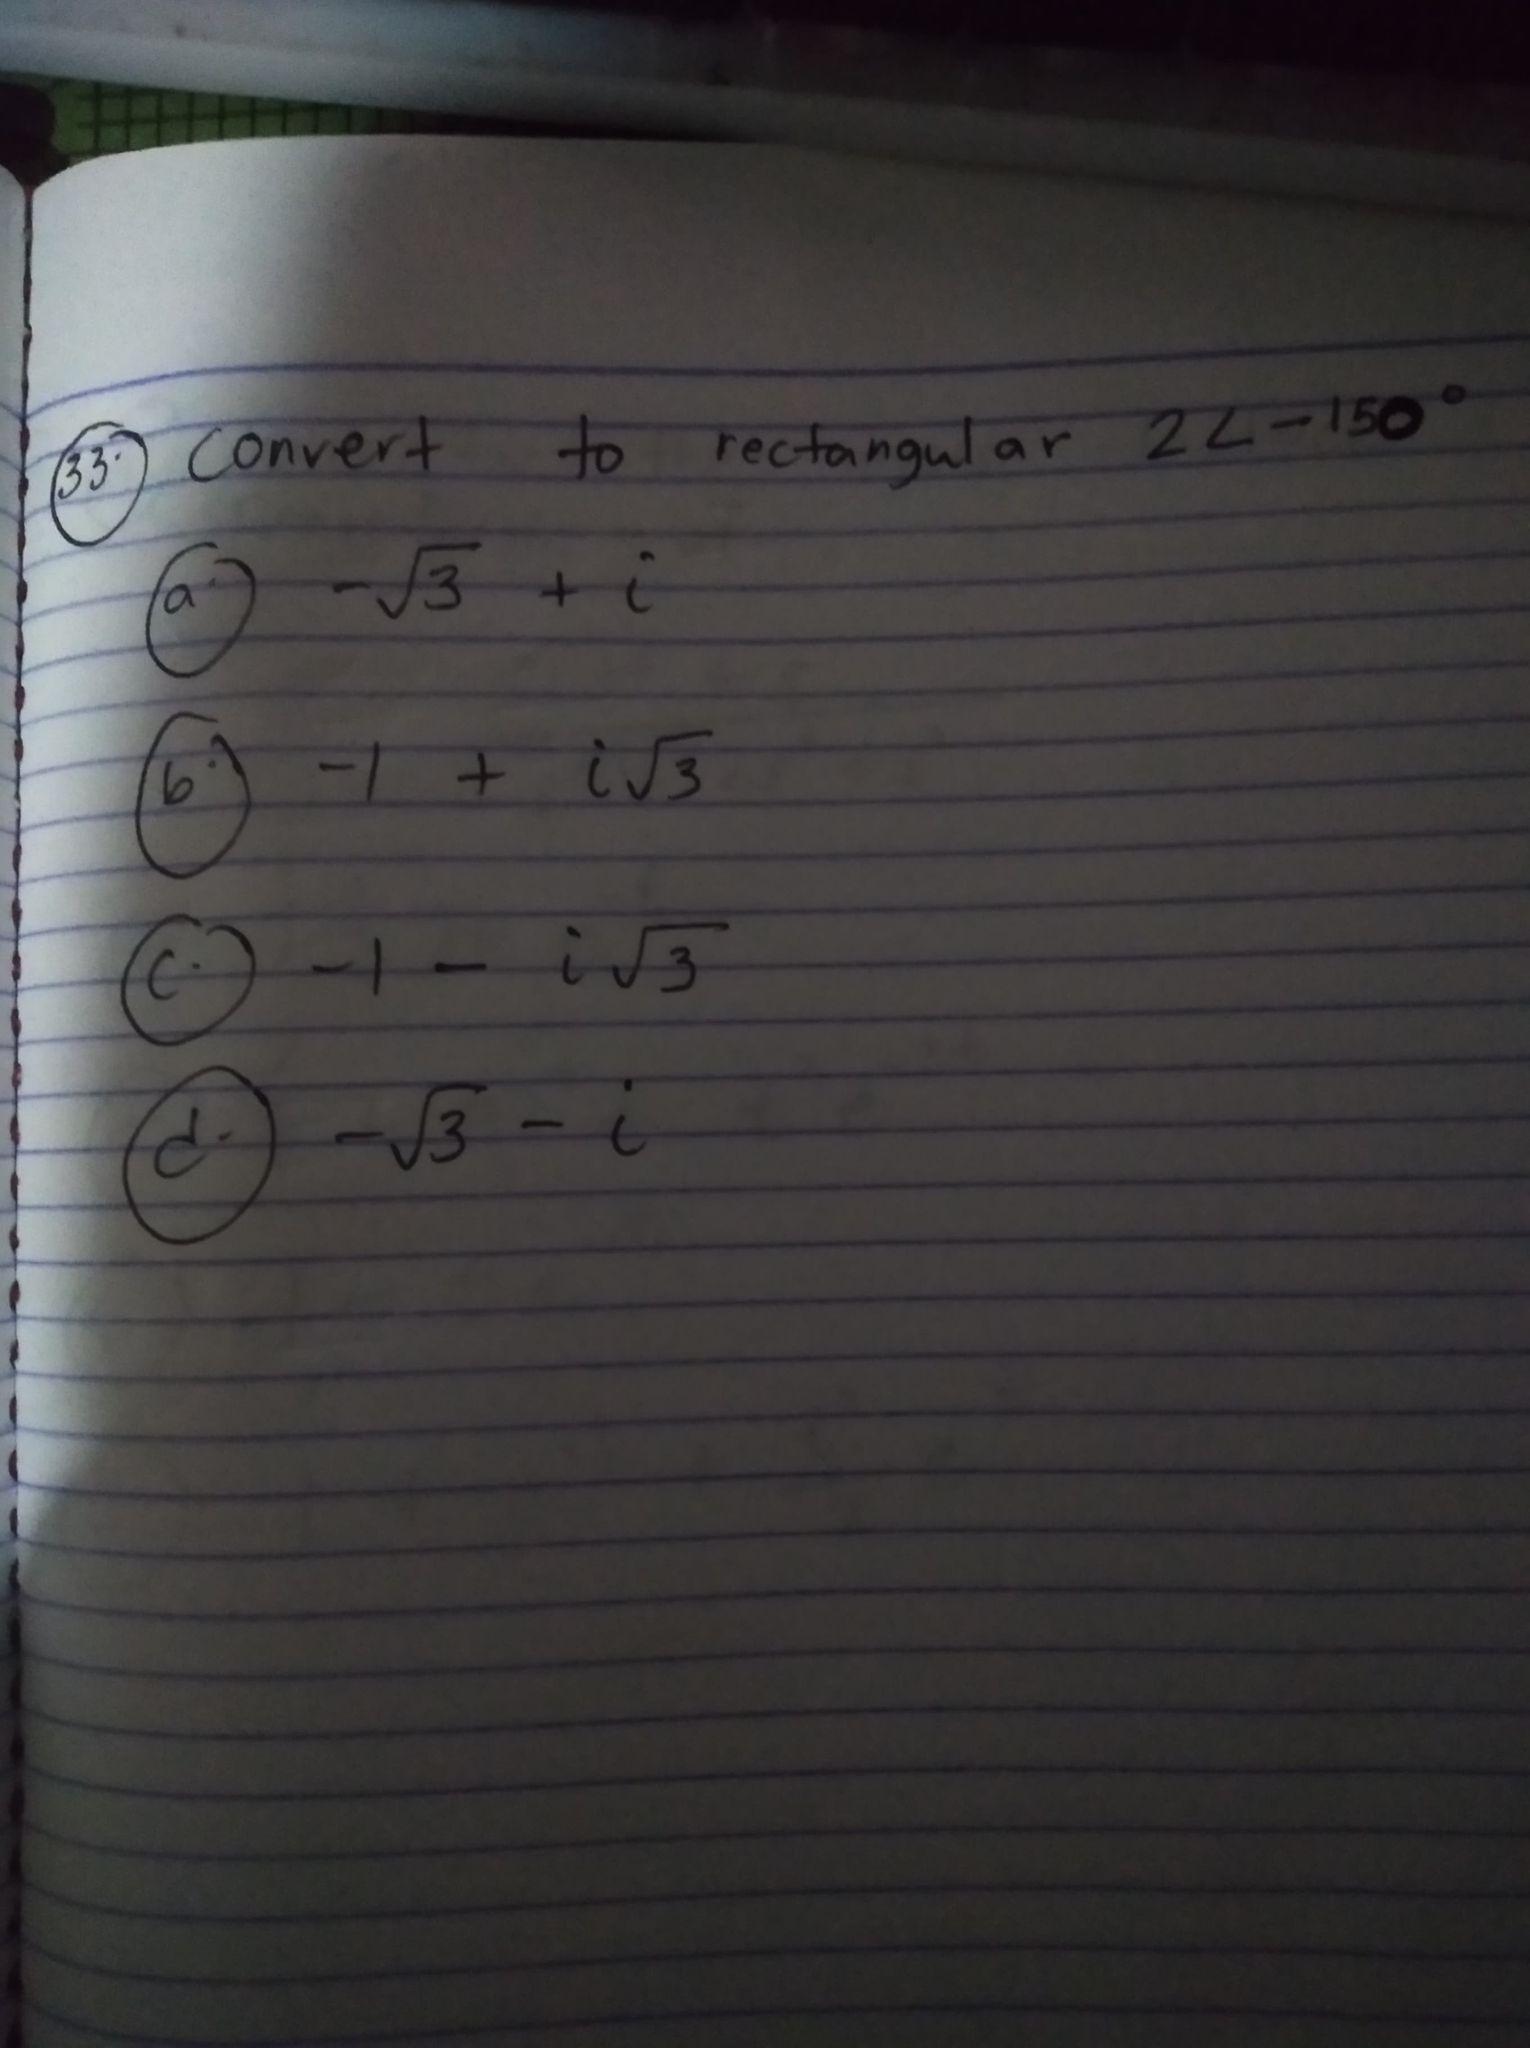 33. Convert to rectangular 2∠-150°
a. -√3 + i
b. -1 + i√3
c. -1 - i√3
d. -√3 - i